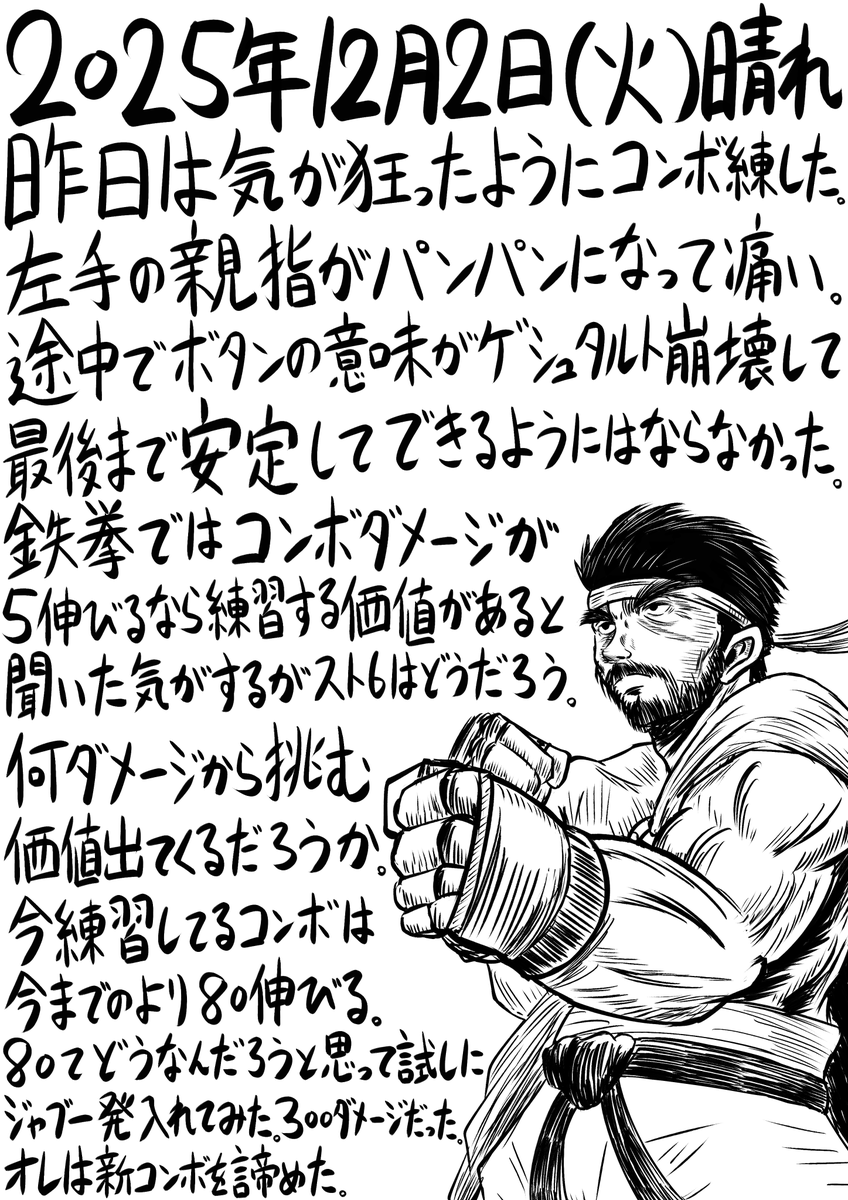 2025年12月2日(火)晴れ
昨日は気が狂ったようにコンボ練した。
左手の親指がパンパンになって痛い。
途中でボタンの意味がゲシュタルト崩壊して
最後まで安定してできるようにはならなかった。
鉄拳ではコンボダメージが
5伸びるなら練習する価値があると
聞いた気がするがスト6はどうだろう。
何ダメージから挑む
価値出てくるだろうか。
今練習してるコンボは
今までのより80伸びる。
80てどうなんだろうと思って試しに
ジャブ一発入れてみた。300ダメージだった。
オレは新コンボを諦めた。